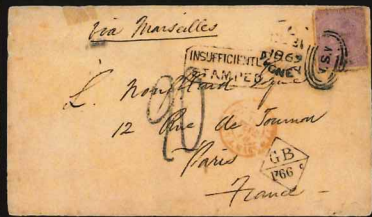 Via Marseilles
INSUFFICIENTLY
STAMPED
SYDNEY
N.S.W
L.
12 Rue de Tournon
Paris
France
GB
1F66c